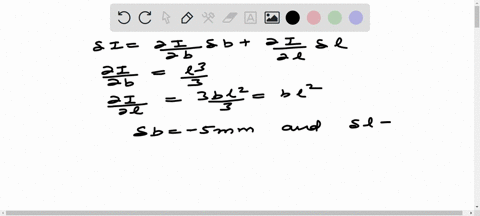 δI = ∂I/∂b δb + ∂I/∂l δl
∂I/∂b = l³/3
∂I/∂l = 3bl²/3 = bl²
δb = -5mm and δl -